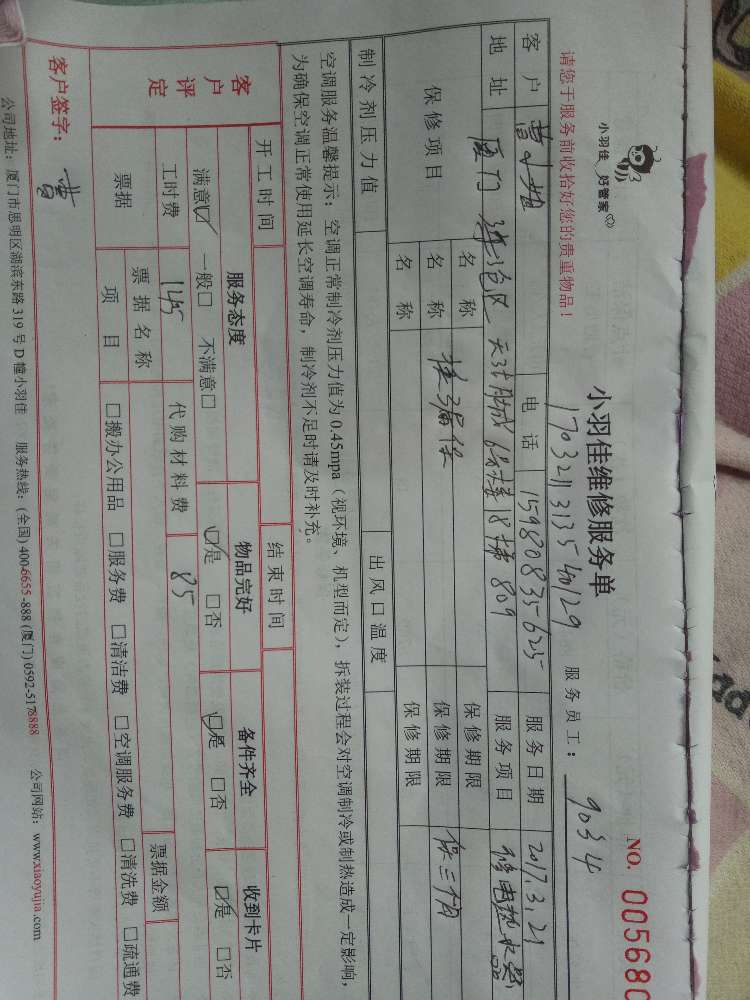 小羽佳 好管家
小羽佳维修服务单
NO. 005680
请您于服务前收拾好您的贵重物品！
170321131354m129 服务员工： 9034
客户 电话 15980835625 服务日期 2017.3.21
地址 厦门 6号楼18梯809 服务项目 修电热水器
保修项目 名称 保修期限
名称 接漏保 保修期限 保三个月
名称 保修期限
制冷剂压力值 出风口温度
空调服务温馨提示：空调正常制冷剂压力值为0.45mpa（视环境、机型而定），拆装过程会对空调制冷或制热造成一定影响，
为确保空调正常使用延长空调寿命，制冷剂不足时请及时补充。
开工时间 结束时间
客户评定 服务态度 物品完好 备件齐全 收到卡片
满意☑ 一般□ 不满意□ ☑是 □否 ☑是 □否 ☑是 □否
工时费 145 代购材料费 85
票据 票据名称 票据金额
项目 □搬办公用品 □服务费 □清洁费 □空调服务费 □清洗费 □疏通费
客户签字： 曹
公司地址：厦门市思明区湖滨东路319号D幢小羽佳 服务热线：(全国) 400-6655-888 (厦门) 0592-5178888 公司网站：www.xiaoyujia.com